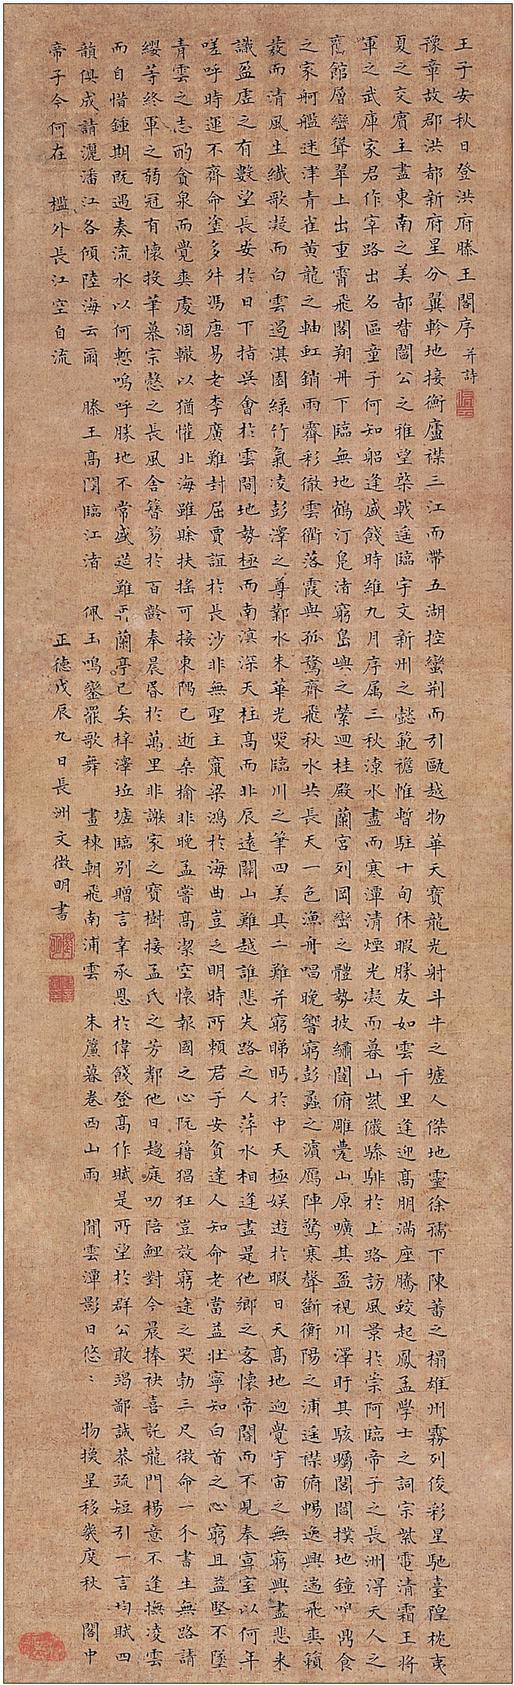 王子安秋日登洪府滕王閣序 并詩
豫章故郡洪都新府星分翼軫地接衡廬襟三江而帶五湖控蠻荊而引甌越物華天寶龍光射斗牛之墟人傑地靈徐孺下陳蕃之榻雄州霧列俊彩星馳臺隍枕夷
夏之交賓主盡東南之美都督閻公之雅望棨戟遙臨宇文新州之懿範襜惟暫駐十旬休暇勝友如雲千里逢迎高朋滿座騰蛟起鳳孟學士之詞宗紫電清霜王將
軍之武庫家君作宰路出名區童子何知躬逢盛餞時維九月序属三秋潦水盡而寒潭清煙光凝而暮山紫儼驂騑於上路訪風景於崇阿臨帝子之長洲得天人之
舊館層巒聳翠上出重霄飛閣翔丹下臨無地鶴汀鳧渚窮島嶼之縈迴桂殿蘭宮列岡巒之體勢披繡闥俯雕甍山原曠其盈視川澤盱其駭矚閭閻撲地鐘鳴鼎食
之家舸艦迷津青雀黃龍之軸虹銷雨霽彩徹雲衢落霞與孤鶩齊飛秋水共長天一色漁舟唱晚響窮彭蠡之濱鴈陣驚寒聲斷衡陽之浦遙襟俯暢逸興遄飛爽籟
發而清風生纖歌凝而白雲遏淇園綠竹氣凌彭澤之尊鄴水朱華光照臨川之筆四美具二難并窮睇眄於中天極娛遊於暇日天高地迥覺宇宙之無窮興盡悲來
識盈虛之有數望長安於日下指吳會於雲間地勢極而南溟深天柱高而北辰遠關山難越誰悲失路之人萍水相逢盡是他鄉之客懷帝閽而不見奉宣室以何年
嗟呼時運不齊命途多舛馮唐易老李廣難封屈賈誼於長沙非無聖主竄梁鴻於海曲豈乏明時所賴君子安貧達人知命老當益壯寧知白首之心窮且益堅不墜
青雲之志酌貪泉而覺爽處涸轍以猶懽北海雖賒扶搖可接東隅已逝桑榆非晚孟嘗高潔空懷報國之心阮籍猖狂豈效窮途之哭勃三尺微命一介書生無路請
纓等終軍之弱冠有懷投筆慕宗愨之長風舍簪笏於百齡奉晨昏於萬里非謝家之寶樹接孟氏之芳鄰他日趨庭叨陪鯉對今晨捧袂喜託龍門楊意不逢撫凌雲
而自惜鍾期既遇奏流水以何慙嗚呼勝地不常盛筵難再蘭亭已矣梓澤坵墟臨別贈言幸承恩於偉餞登高作賦是所望於群公敢竭鄙誠恭疏短引一言均賦四
韻俱成請灑潘江各傾陸海云爾 滕王高閣臨江渚 佩玉鳴鑾罷歌舞 畫棟朝飛南浦雲 朱簾暮卷西山雨 閒雲潭影日悠〻 物換星移幾度秋 閣中
帝子今何在 檻外長江空自流 正德戊辰九日長洲文徵明書